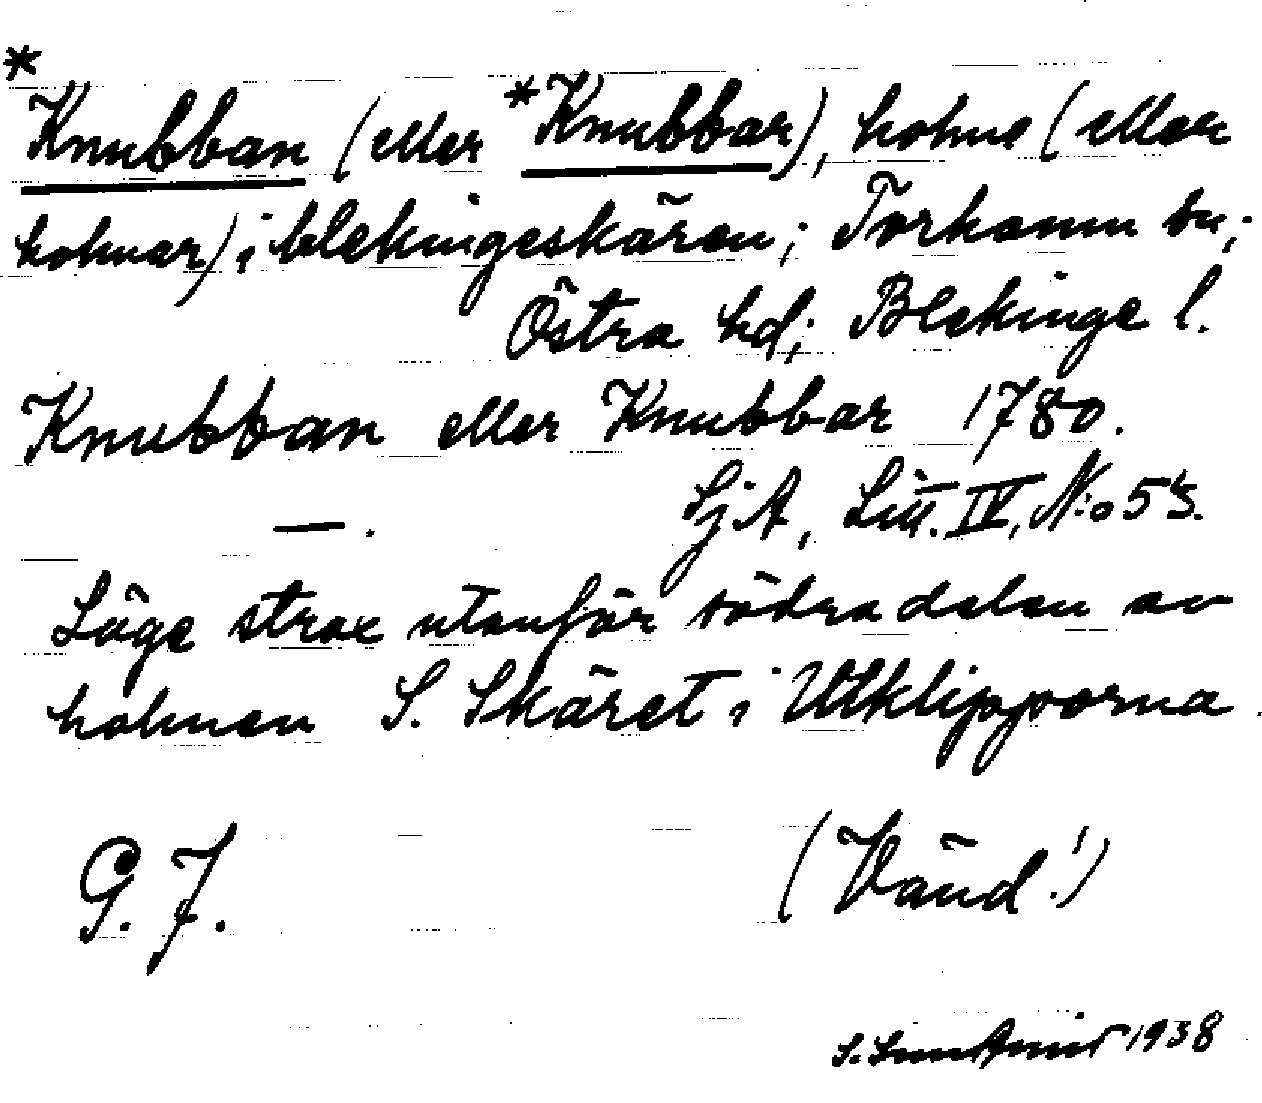 *
Knubban (eller *Knubbar), holme (eller
holmar) i blekingeskären; Torhamn sn;
Östra hd; Blekinge l.
Knubban eller Knubbar 1780.
— . SjA, Litt. IV, N:o 53.
Läge strax utanför södra delen av
holmen S. Skäret i Utklipporna.
G. F. (Vänd!)
1938